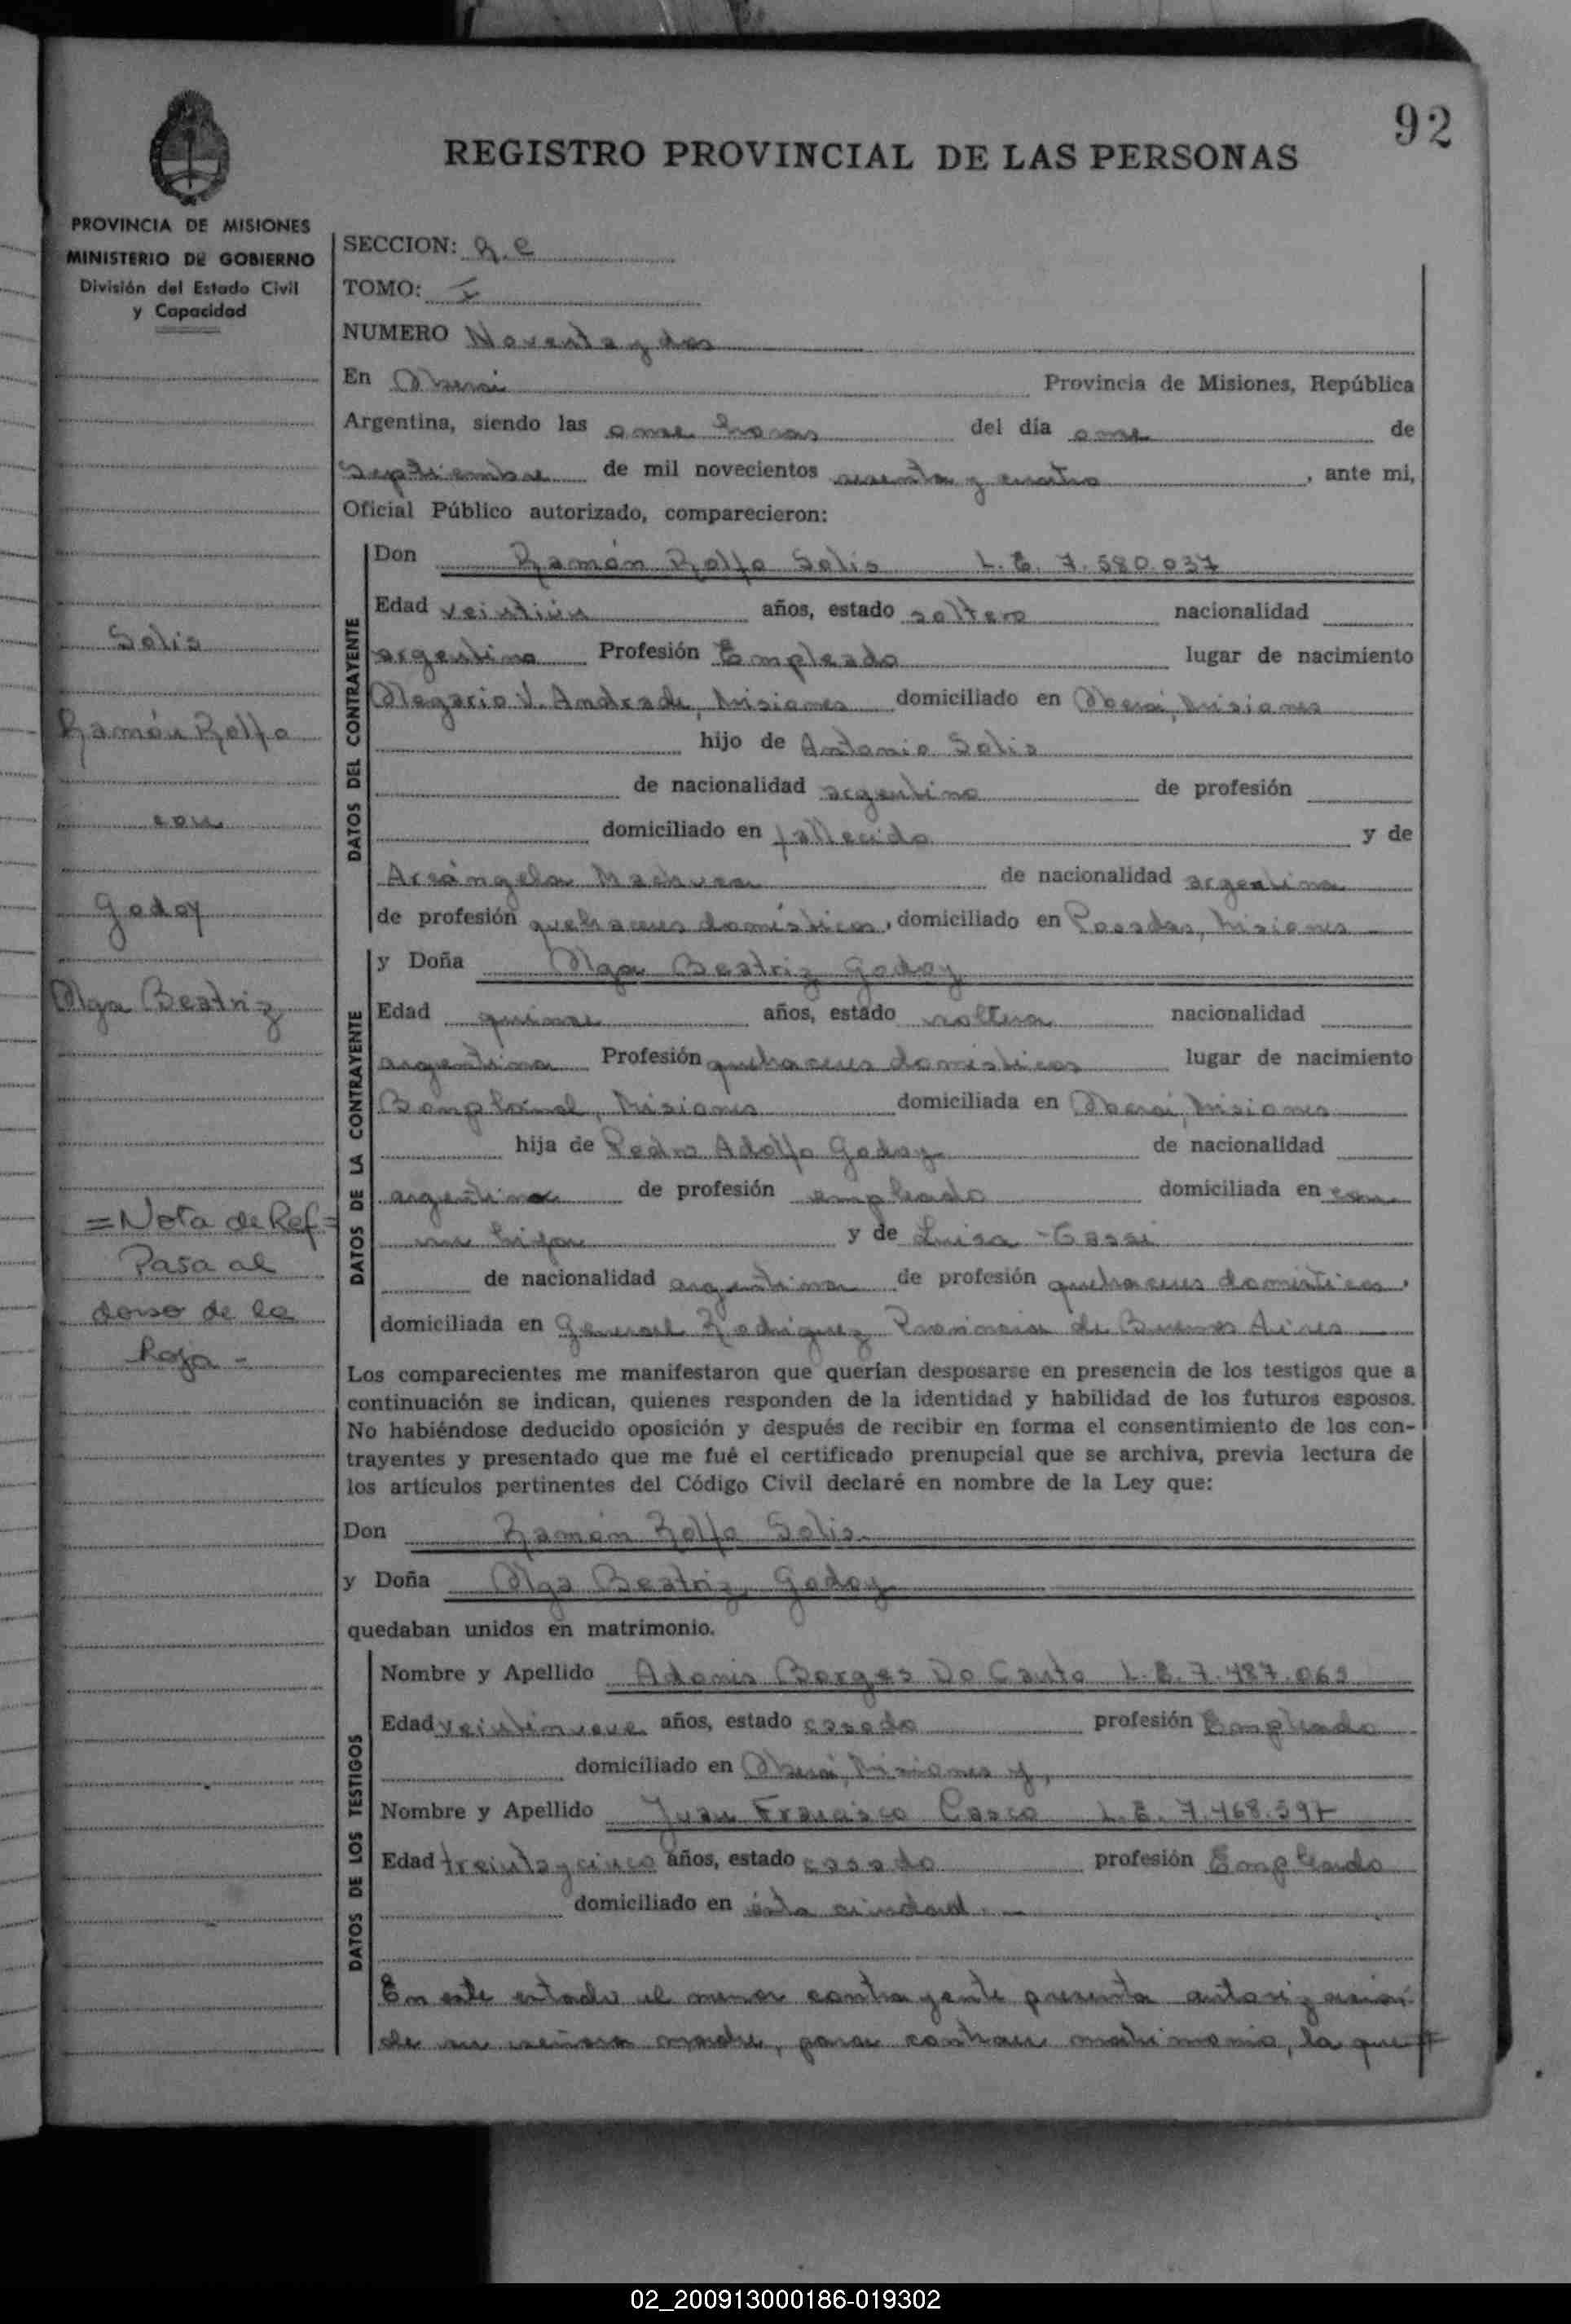 92
REGISTRO PROVINCIAL DE LAS PERSONAS
PROVINCIA DE MISIONES
MINISTERIO DE GOBIERNO
División del Estado Civil
y Capacidad
Solis
Ramón Rolfo
con
Godoy
Olga Beatriz
=Nota de Ref=
Pasa al
dorso de la
hoja -
SECCION: R.C
TOMO: I
NUMERO Noventa y dos
En Oberá Provincia de Misiones, República
Argentina, siendo las once horas del día once de
Septiembre de mil novecientos sesenta y cuatro, ante mi,
Oficial Público autorizado, comparecieron:
DATOS DEL CONTRAYENTE
Don Ramón Rolfo Solis L. E. 7.580.037
Edad veintiún años, estado soltero nacionalidad
argentino Profesión Empleado lugar de nacimiento
Olegario V. Andrade, Misiones domiciliado en Oberá, Misiones
hijo de Antonio Solis
de nacionalidad argentino de profesión
domiciliado en fallecido y de
Arcángela Machuca de nacionalidad argentina
de profesión quehaceres domésticos, domiciliado en Posadas, Misiones
DATOS DE LA CONTRAYENTE
y Doña Olga Beatriz Godoy
Edad quince años, estado soltera nacionalidad
argentina Profesión quehaceres domésticos lugar de nacimiento
Bompland, Misiones domiciliada en Oberá, Misiones
hija de Pedro Adolfo Godoy de nacionalidad
argentino de profesión empleado domiciliada en con
su hija y de Luisa
de nacionalidad argentina de profesión quehaceres domésticos,
domiciliada en General Rodriguez Provincia de Buenos Aires
Los comparecientes me manifestaron que querían desposarse en presencia de los testigos que a
continuación se indican, quienes responden de la identidad y habilidad de los futuros esposos.
No habiéndose deducido oposición y después de recibir en forma el consentimiento de los con-
trayentes y presentado que me fué el certificado prenupcial que se archiva, previa lectura de
los artículos pertinentes del Código Civil declaré en nombre de la Ley que:
Don Ramón Rolfo Solis
y Doña Olga Beatriz Godoy
quedaban unidos en matrimonio.
DATOS DE LOS TESTIGOS
Nombre y Apellido Adonis Borges Do Canto L. E. 7.487.069
Edad veintinueve años, estado casado profesión Empleado
domiciliado en Oberá, Misiones y,
Nombre y Apellido Juan Francisco Casco L. E. 7.468.597
Edad treinta y cinco años, estado casado profesión Empleado
domiciliado en ésta ciudad. —
En este estado el menor contrayente presenta autorización
de su señora madre, para contraer matrimonio, la que #
02_200913000186-019302